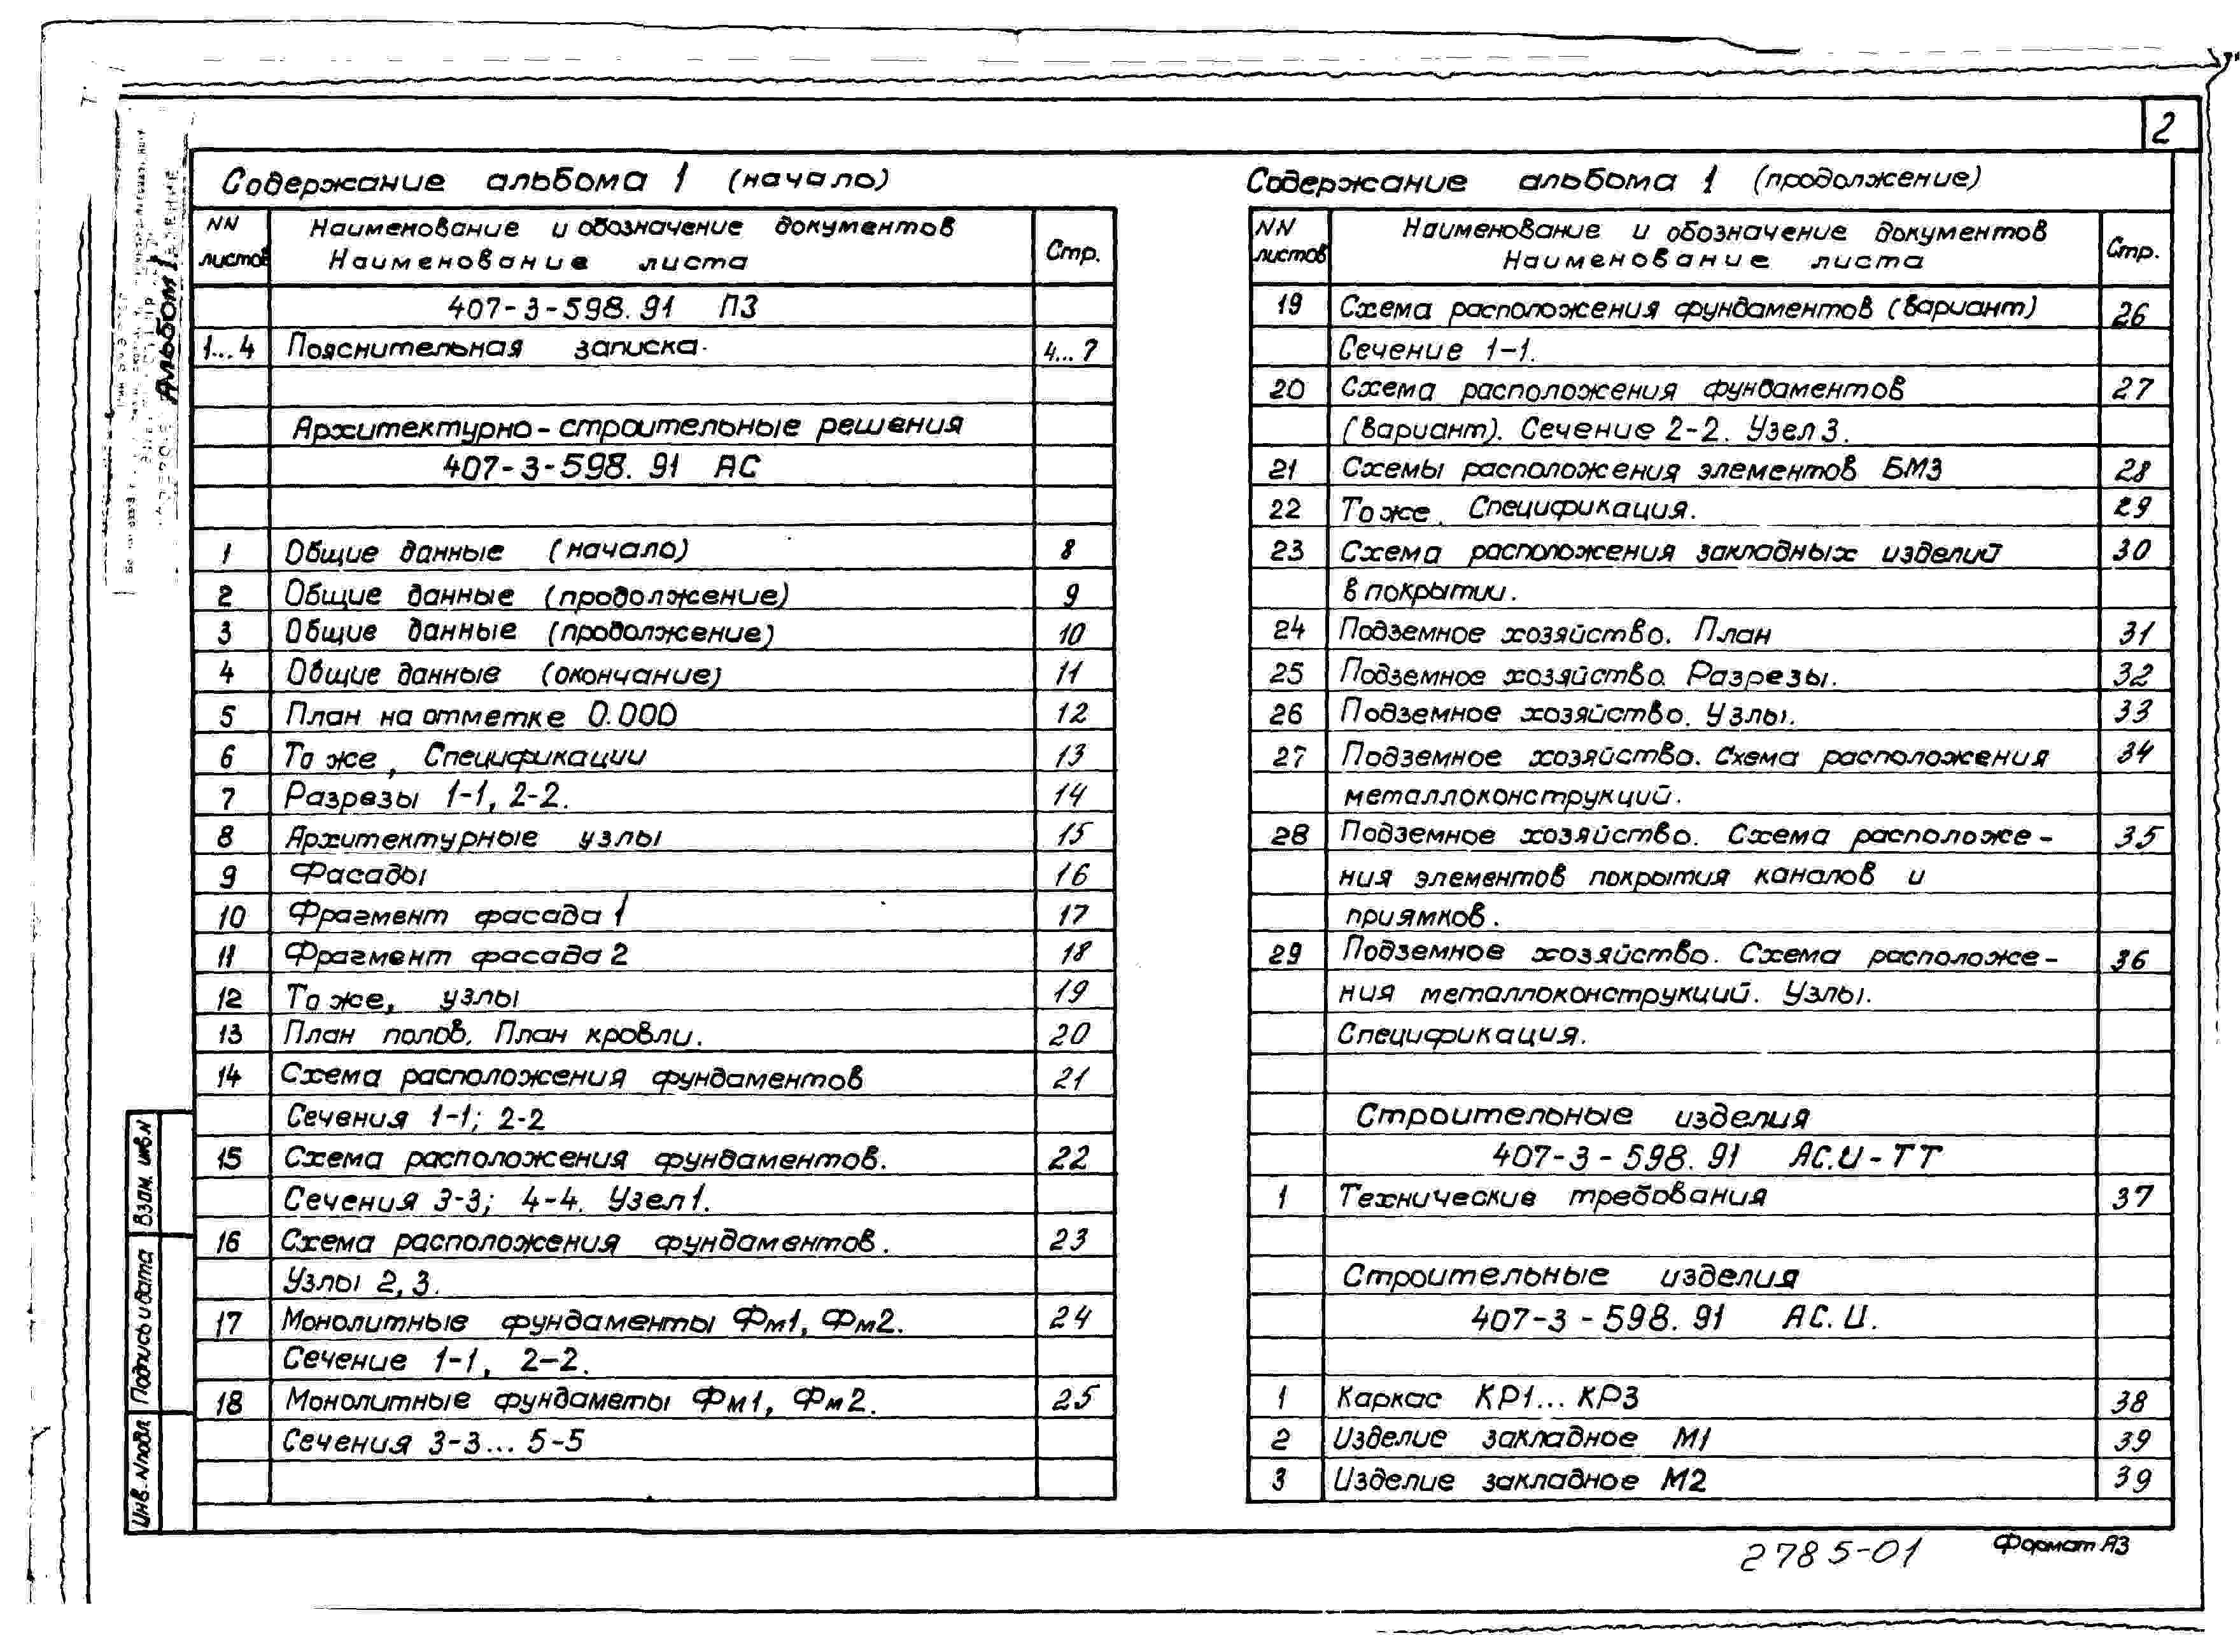 2
Альбом 1
Содержание альбома 1 (начало)
NN листов Наименование и обозначение документов Наименование листа Стр.
407-3-598.91 ПЗ
1...4 Пояснительная записка. 4...7
Архитектурно-строительные решения
407-3-598.91 АС
1 Общие данные (начало) 8
2 Общие данные (продолжение) 9
3 Общие данные (продолжение) 10
4 Общие данные (окончание) 11
5 План на отметке 0.000 12
6 То же, Спецификации 13
7 Разрезы 1-1, 2-2. 14
8 Архитектурные узлы 15
9 Фасады 16
10 Фрагмент фасада 1 17
11 Фрагмент фасада 2 18
12 То же, узлы 19
13 План полов. План кровли. 20
14 Схема расположения фундаментов 21
Сечения 1-1; 2-2
15 Схема расположения фундаментов. 22
Сечения 3-3; 4-4. Узел 1.
16 Схема расположения фундаментов. 23
Узлы 2,3.
17 Монолитные фундаменты Фм1, Фм2. 24
Сечение 1-1, 2-2.
18 Монолитные фундаметы Фм1, Фм2. 25
Сечения 3-3... 5-5
Содержание альбома 1 (продолжение)
NN листов Наименование и обозначение документов Наименование листа Стр.
19 Схема расположения фундаментов (вариант) 26
Сечение 1-1.
20 Схема расположения фундаментов 27
(вариант). Сечение 2-2. Узел 3.
21 Схемы расположения элементов БМЗ 28
22 То же. Спецификация. 29
23 Схема расположения закладных изделий 30
в покрытии.
24 Подземное хозяйство. План 31
25 Подземное хозяйство. Разрезы. 32
26 Подземное хозяйство. Узлы. 33
27 Подземное хозяйство. Схема расположения 34
металлоконструкций.
28 Подземное хозяйство. Схема расположе- 35
ния элементов покрытия каналов и
приямков.
29 Подземное хозяйство. Схема расположе- 36
ния металлоконструкций. Узлы.
Спецификация.
Строительные изделия
407-3-598.91 АС.И-ТТ
1 Технические требования 37
Строительные изделия
407-3-598.91 АС.И.
1 Каркас КР1... КР3 38
2 Изделие закладное М1 39
3 Изделие закладное М2 39
Взам. инв.N
Подпись и дата
Инв.Nподл
2785-01
Формат А3